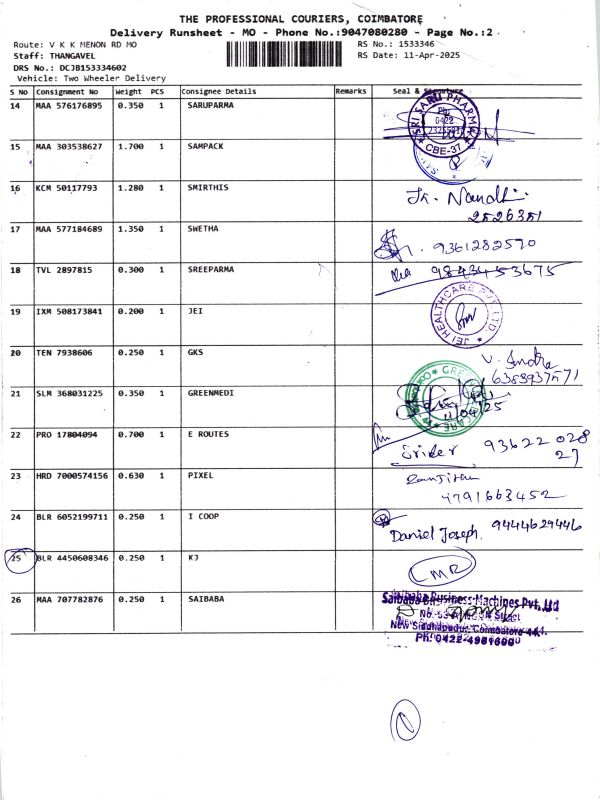 THE PROFESSIONAL COURIERS, COIMBATORE
Delivery Runsheet - MO - Phone No.:9047080280 - Page No.:2
Route: V K K MENON RD MO
RS No.: 1533346
Staff: THANGAVEL
RS Date: 11-Apr-2025
DRS No.: DCJB153334602
Vehicle: Two Wheeler Delivery
S No Consignment No Weight PCS Consignee Details Remarks Seal & Signature
14 MAA 576176895 0.350 1 SARUPARMA
SRI SARU PHARMA
Ph:
0422
CBE-37
15 MAA 303538627 1.700 1 SAMPACK
16 KCM 50117793 1.280 1 SMIRTHIS
Nandhi
2526351
17 MAA 577184689 1.350 1 SWETHA
9361282570
18 TVL 2897815 0.300 1 SREEPARMA
9843453675
19 IXM 508173841 0.200 1 JEI
JEI HEALTHCARE PVT LTD
20 TEN 7938606 0.250 1 GKS
V. Indra
6383937571
21 SLM 368031225 0.350 1 GREENMEDI
11/04/25
22 PRO 17804094 0.700 1 E ROUTES
Srider 93622 028
27
23 HRD 7000574156 0.630 1 PIXEL
Ranjith
4791663452
24 BLR 6052199711 0.250 1 I COOP
Daniel Joseph. 9444629446
25 BLR 4450608346 0.250 1 KJ
LMR
26 MAA 707782876 0.250 1 SAIBABA
Saibaba Business Machines Pvt. Ltd
New Siddhapudur, Coimbatore-44.
Ph: 0422-4951600
1